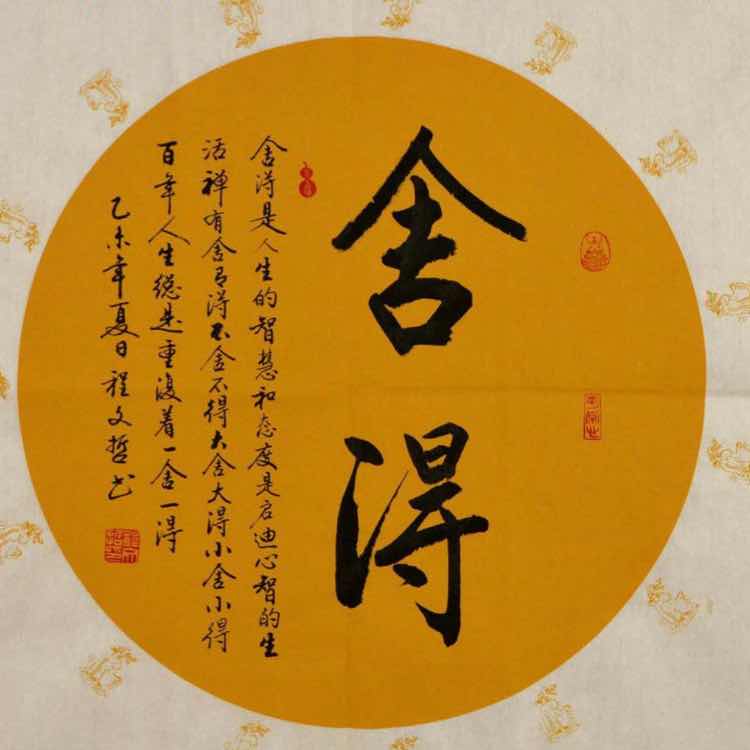 舍得
舍得是人生的智慧和态度是启迪心智的生
活禅有舍有得不舍不得大舍大得小舍小得
百年人生總是重復着一舍一得
乙未年夏日程文哲书